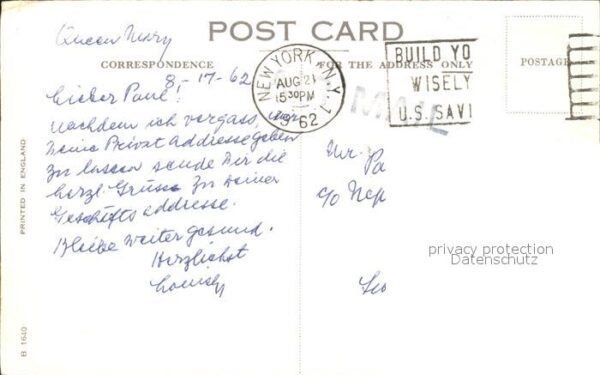 POST CARD
Queen Mary
CORRESPONDENCE
FOR THE ADDRESS ONLY
POSTAGE
8-17-62
NEW YORK, N.Y. 1
AUG 21
5 30PM
1962
BUILD YO
WISELY
U.S. SAVI
MAIL
Lieber Paul!
Nachdem ich vergass, mir
Deine Privat addresse geben
zu lassen sende Dir die
herzl. Grüsse zu Deiner
Geschäfts addresse.
Bleibe weiter gesund.
Herzlichst
Mr. Pa
c/o
privacy protection
Datenschutz
PRINTED IN ENGLAND
B 1640